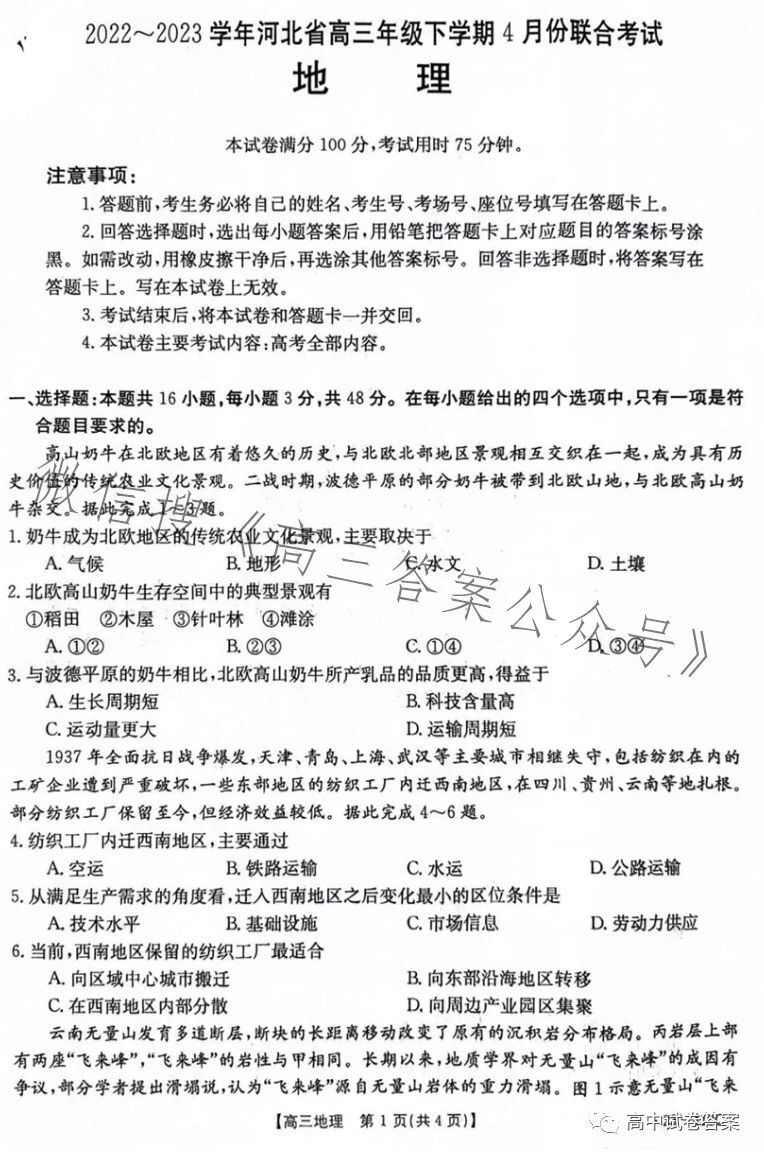 2022～2023学年河北省高三年级下学期4月份联合考试
地 理
本试卷满分100分,考试用时75分钟。
注意事项:
1.答题前,考生务必将自己的姓名、考生号、考场号、座位号填写在答题卡上。
2.回答选择题时,选出每小题答案后,用铅笔把答题卡上对应题目的答案标号涂
黑。如需改动,用橡皮擦干净后,再选涂其他答案标号。回答非选择题时,将答案写在
答题卡上。写在本试卷上无效。
3.考试结束后,将本试卷和答题卡一并交回。
4.本试卷主要考试内容:高考全部内容。
一、选择题:本题共16小题,每小题3分,共48分。在每小题给出的四个选项中,只有一项是符
合题目要求的。
高山奶牛在北欧地区有着悠久的历史,与北欧北部地区景观相互交织在一起,成为具有历
史价值的传统农业文化景观。二战时期,波德平原的部分奶牛被带到北欧山地,与北欧高山奶
牛杂交。据此完成1～3题。
1.奶牛成为北欧地区的传统农业文化景观,主要取决于
A.气候 B.地形 C.水文 D.土壤
2.北欧高山奶牛生存空间中的典型景观有
①稻田 ②木屋 ③针叶林 ④滩涂
A.①② B.②③ C.①④ D.③④
3.与波德平原的奶牛相比,北欧高山奶牛所产乳品的品质更高,得益于
A.生长周期短 B.科技含量高
C.运动量更大 D.运输周期短
1937年全面抗日战争爆发,天津、青岛、上海、武汉等主要城市相继失守,包括纺织在内的
工矿企业遭到严重破坏,一些东部地区的纺织工厂内迁西南地区,在四川、贵州、云南等地扎根。
部分纺织工厂保留至今,但经济效益较低。据此完成4～6题。
4.纺织工厂内迁西南地区,主要通过
A.空运 B.铁路运输 C.水运 D.公路运输
5.从满足生产需求的角度看,迁入西南地区之后变化最小的区位条件是
A.技术水平 B.基础设施 C.市场信息 D.劳动力供应
6.当前,西南地区保留的纺织工厂最适合
A.向区域中心城市搬迁 B.向东部沿海地区转移
C.在西南地区内部分散 D.向周边产业园区集聚
云南无量山发育多道断层,断块的长距离移动改变了原有的沉积岩分布格局。丙岩层上部
有两座“飞来峰”,“飞来峰”的岩性与甲相同。长期以来,地质学界对无量山“飞来峰”的成因有
争议,部分学者提出滑塌说,认为“飞来峰”源自无量山岩体的重力滑塌。图1示意无量山“飞来
【高三地理 第1页(共4页)】
微信搜《高三答案公众号》
高中试卷答案